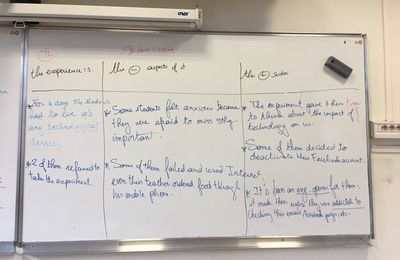 the experience is.
* For 4 days 54 students
had to live w/o
any technological
devices
* 2 of them refused to
take the experiment.
the ⊖ aspects of it
* Some students felt anxious because
they were afraid to miss sthg
important.
* Some of them failed and used Internet
even their teacher ordered food through
his mobile phone.
the ⊕ sides
* The experiment gave them time
to think about the impact of
technology on us.
Some of them decided to
deactivate their Facebook account.
* It's been an eye opener for them.
it made them realise they were addicted to
checking their emails, Facebook pages, etc.